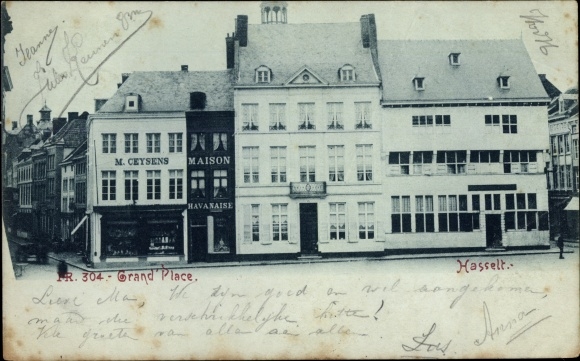 Jeanne
M. CEYSENS
MAISON
HAVANAISE
PR. 304.- Grand Place.
Hasselt.-
Lieve Ma, Ik ben goed en wel aangekomen,
maar die verschrikkelijke hitte!
Vele groeten van alla aan allen
Anna